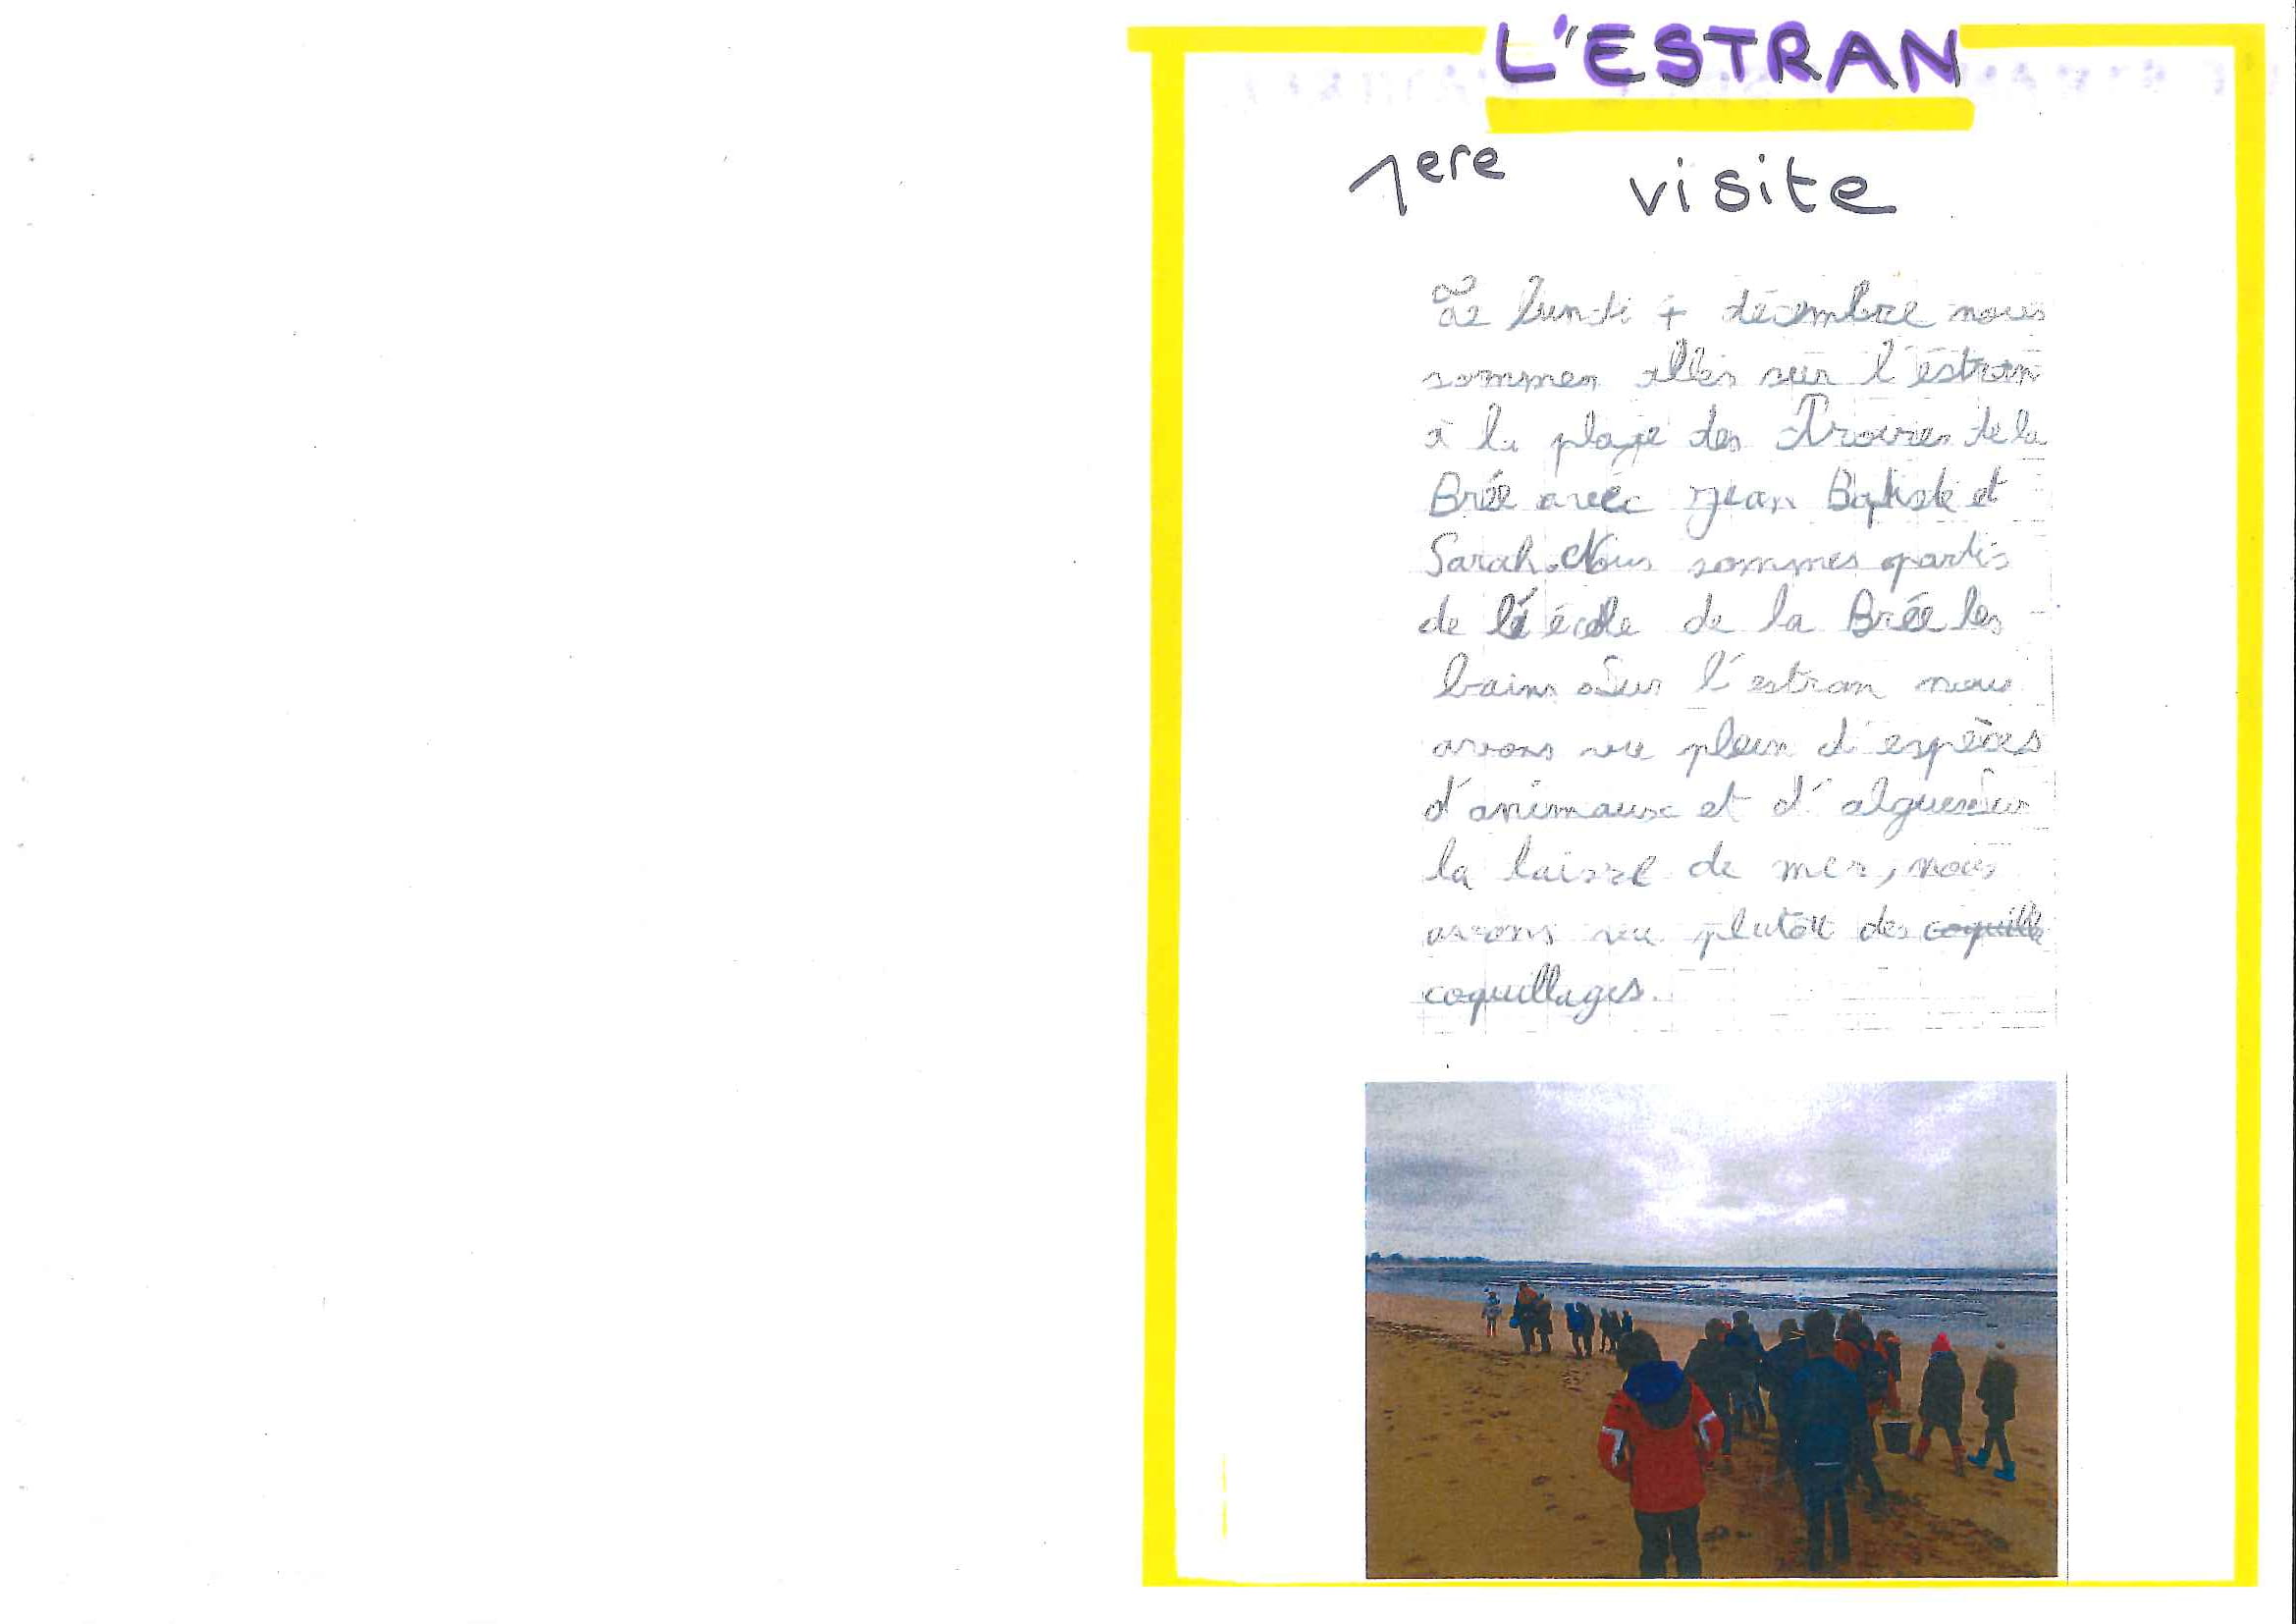 L'ESTRAN
1ere visite
Le lundi 4 décembre nous
sommes allés sur l'éstran
à la plage des de la
Brée avec Jean Baptiste et
Sarah. Nous sommes partis
de l'école de la Brée les
bains. Sur l'estran nous
avons vu plein d'espèces
d'animaux et d'algues. Sur
la laisse de mer, nous
avons vu plutôt des coquille
coquillages.